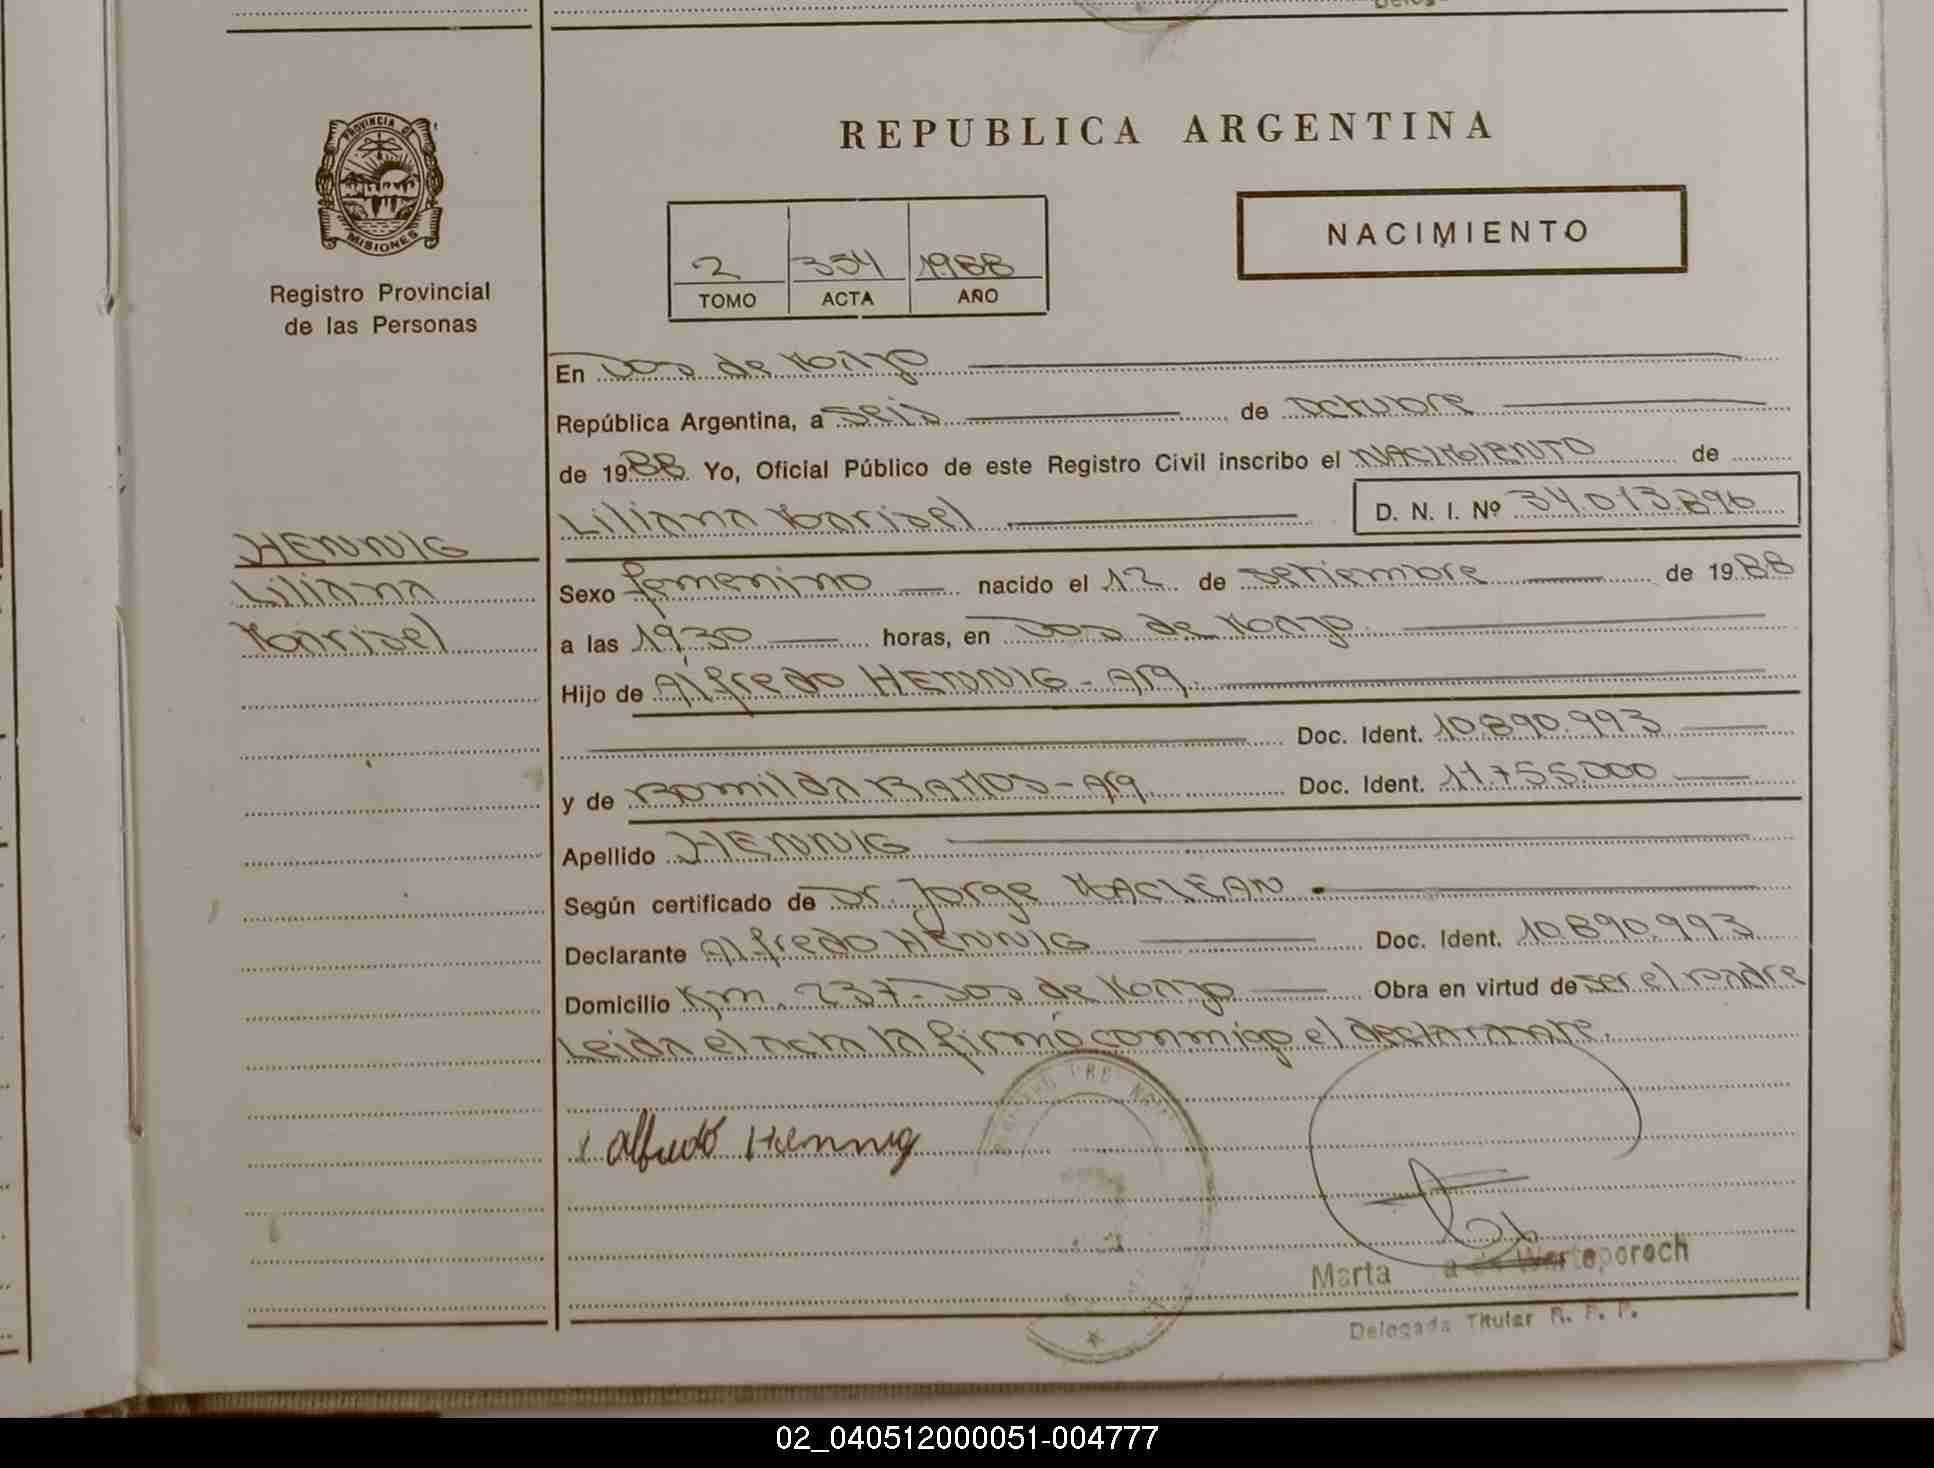 PROVINCIA DE
MISIONES
Registro Provincial
de las Personas
HENNIG
Liliana
Marisel
REPUBLICA ARGENTINA
NACIMIENTO
2 354 1988
TOMO ACTA AÑO
En Dos de Mayo
República Argentina, a seis de octubre
de 1988 Yo, Oficial Público de este Registro Civil inscribo el NACIMIENTO de
Liliana Marisel D. N. I. Nº 34.013.896
Sexo femenino nacido el 12 de setiembre de 1988
a las 19,30 horas, en Dos de Mayo
Hijo de Alfredo HENNIG - Arg.
Doc. Ident. 10.890.993
y de Romilda RAMOS - Arg Doc. Ident. 11.755.000
Apellido HENNIG
Según certificado de Dr. Jorge MACLEAN
Declarante Alfredo HENNIG Doc. Ident. 10.890.993
Domicilio Km. 237 - Dos de Mayo Obra en virtud de ser el padre
Leida el acta la firmó conmigo el declarante.
x Alfredo Hennig
Marta
Delegada Titular R. P. P.
02_040512000051-004777